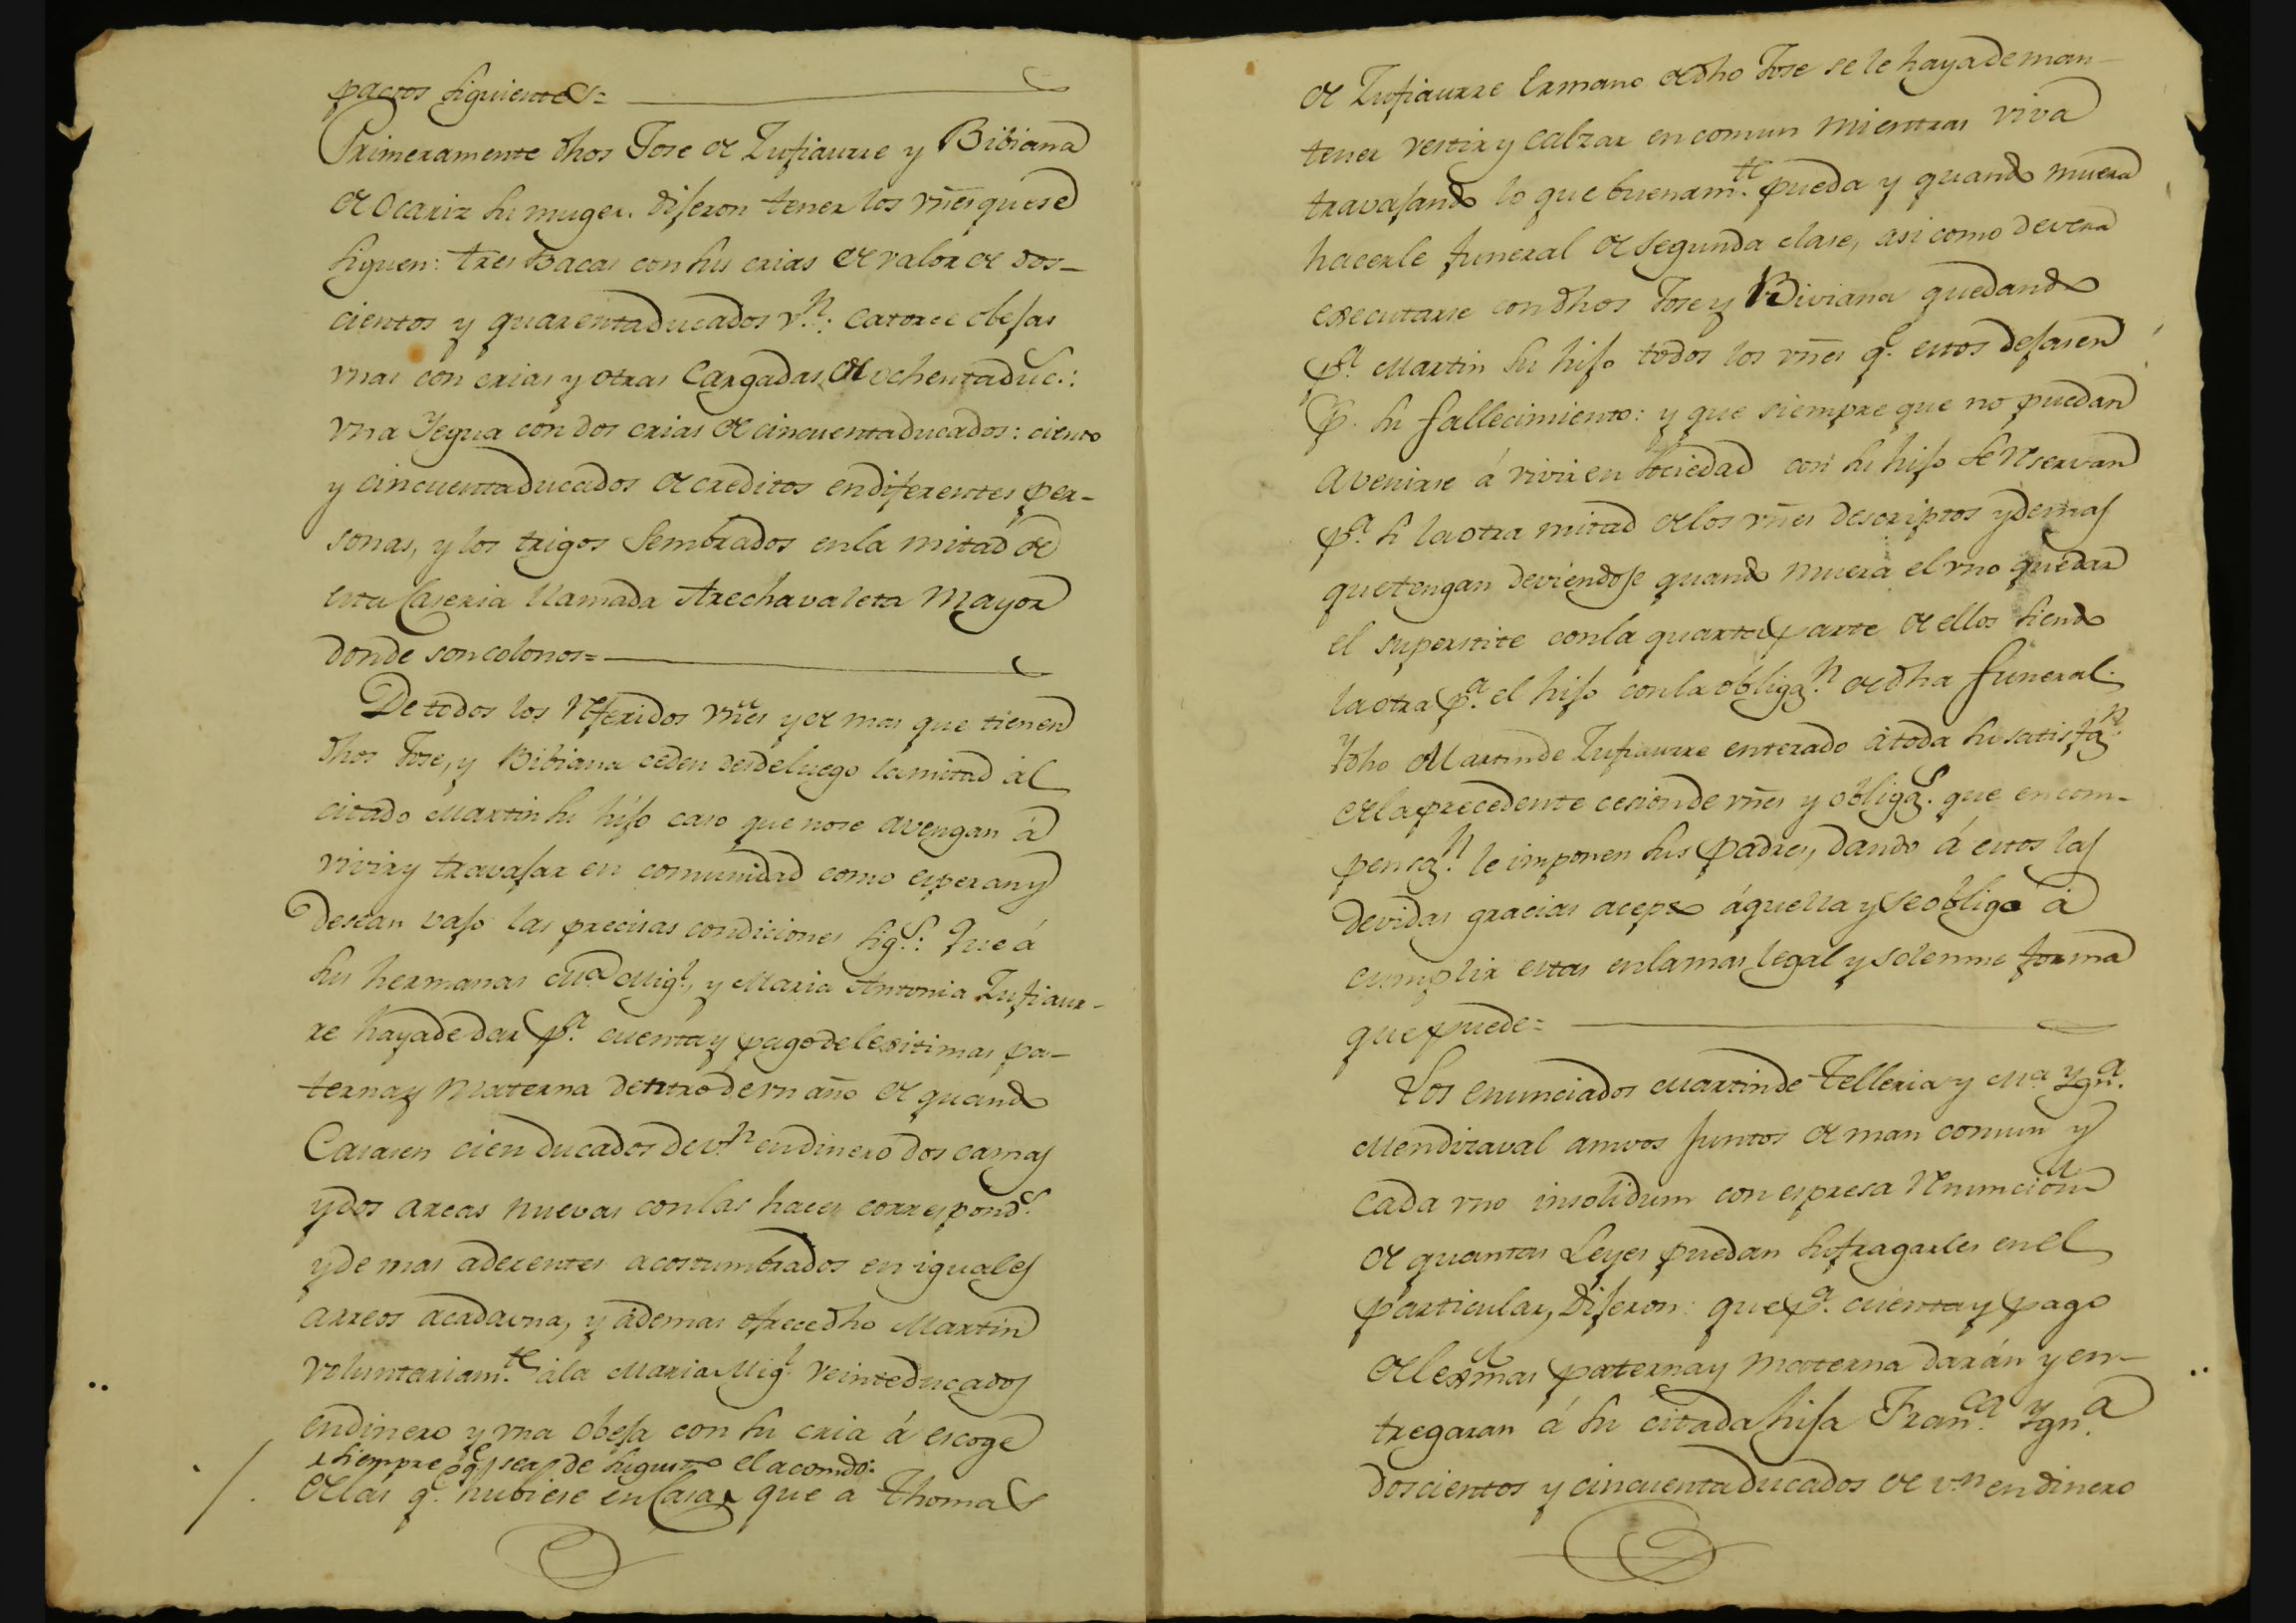 pactos siguientes=
Primeramente dhos Jose de Zufiaurre y Bibiana
de Ocariz su muger. dijeron tener los vñes que se
siguen: tres Bacas con sus crias de valor de dos-
cientos y quarenta ducados v.n: catorce obejas
unas con crias y otras cargadas, de ochenta duc.s:
vna Yegua con dos crias de cincuenta ducados: ciento
y cincuenta ducados de creditos en diferentes per-
sonas, y los trigos sembrados en la mitad de
esta Caseria llamada Arechavaleta Mayor
donde son colonos=
De todos los referidos vñes y de mas que tienen
dhos Jose, y Bibiana ceden desde luego la mitad al
citado Martin su hijo caso que no se avengan á
vivir y travajar en comunidad como esperan y
desean vajo las precisas condiciones sig.s: Que á
sus hermanas M.a Mig.l, y Maria Antonia Zufiaur-
re haya de dar p.a cuenta y pago de lexitimas pa-
terna y Materna dentro de vn año de quando
Casasen cien ducados de v.n en dinero dos camas
y dos arcas nuevas con las haces correspond.s
y de mas aderentes acostumbrados en iguales
arreos a cada vna, y ademas ofrece dho Martin
voluntariam.te á la Maria Mig.l veinte ducados
en dinero y vna obeja con su cria á escoge
x siempre q.e sea de su gusto el acomdo:
de las q.e hubiese en Casa x que a Thomas
de Zufiaurre Ermano de dho Jose se le haya de man-
tener vestir y calzar en comun mientras viva
travajando lo que buenam.te pueda y quando muera
hacerle funeral de segunda clase, asi como devera
executarse con dhos Jose y Biviana quedando
p.a Martin su hijo todos los vñes q.e estos dejasen
p.r su fallecimiento: y que siempre que no puedan
avenirse á vivir en sociedad con su hijo se reservan
p.a si la otra mitad de los vñes descriptos y demas
que tengan deviendose quando muera el vno quedar
el superstite con la quarta parte de ellos siendo
la otra p.a el hijo con la obligaz.n de dha funeral.
Y dho Martin de Zufiaurre enterado á toda su satisfaz.n
de la precedente cesion de vñes y obligaz.s que en com-
pensaz.n le imponen sus Padres, dando á estos las
devidas gracias acepto áquella y se obligo á
cumplir estas en la mas legal y solemne forma
que puede=
Los enunciados Martin de Telleria y M.a Ygn.a
Mendizaval amvos juntos de man comun y
cada vno insolidum con espresa renuncion
de quantas Leyes puedan sufragarles en el
particular, dijeron: que p.a cuenta y pago
de lexmas paterna y materna darán y en-
tregaran á su citada hija Fran.ca Ygn.a
doscientos y cincuenta ducados de v.n en dinero